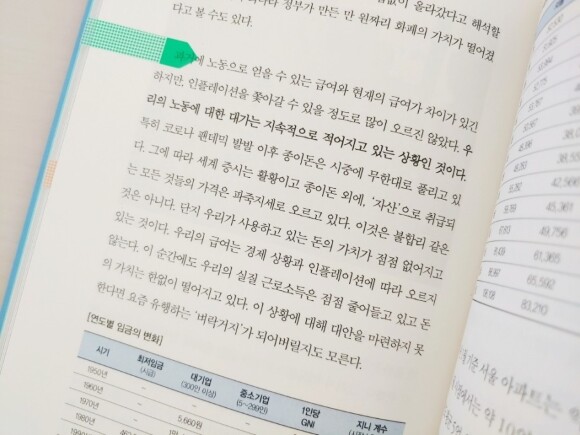 없이 올라갔다고 해석할
정부가 만든 만 원짜리 화폐의 가치가 떨어졌
다고 볼 수도 있다.
과거에 노동으로 얻을 수 있는 급여와 현재의 급여가 차이가 있긴
하지만, 인플레이션을 쫓아갈 수 있을 정도로 많이 오르진 않았다. 우
리의 노동에 대한 대가는 지속적으로 적어지고 있는 상황인 것이다.
특히 코로나 팬데믹 발발 이후 종이돈은 시중에 무한대로 풀리고 있
다. 그에 따라 세계 증시는 활황이고 종이돈 외에, '자산'으로 취급되
는 모든 것들의 가격은 파죽지세로 오르고 있다. 이것은 불합리 같은
것은 아니다. 단지 우리가 사용하고 있는 돈의 가치가 점점 없어지고
있는 것이다. 우리의 급여는 경제 상황과 인플레이션에 따라 오르지
않는다. 이 순간에도 우리의 실질 근로소득은 점점 줄어들고 있고 돈
의 가치는 한없이 떨어지고 있다. 이 상황에 대해 대안을 마련하지 못
한다면 요즘 유행하는 '벼락거지'가 되어버릴지도 모른다.
[연도별 임금의 변화]
시기 최저임금 (시급) 대기업 (300인 이상) 중소기업 (5~299인) 1인당 GNI 지니 계수
1950년 –
1960년 – –
1970년 – –
1980년 – 5,660원
1990년
42,566
45,361
49,756
61,365
65,592
83,210
기준 서울 아파트는